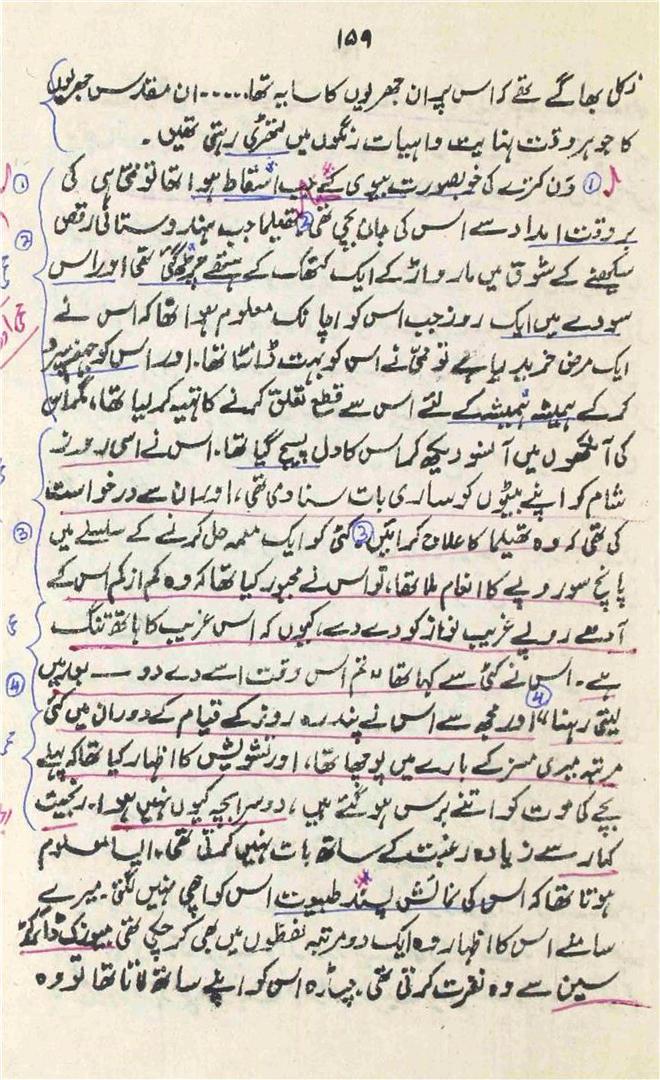 ۱۵۹
نکل بھاگے تھے کہ اس پر ان جھریوں کا سایہ تھا..... ان مقدس جھریوں
کا جو ہر وقت نہایت واہیات رنگوں میں لتھڑی رہتی تھیں۔
① ون کترے کی خوبصورت بیوی کے جب اسقاط ہوا تھا تو ممّی ہی کی
بروقت امداد سے اس کی جان بچی تھی۔ ② تھیلما جب ہندوستانی رقص
سیکھنے کے شوق میں مارواڑ کے ایک کتھک کے ہتھے چڑھ گئی تھی اور اس
سودے میں ایک روز جب اس کو اچانک معلوم ہوا تھا کہ اس نے
ایک مرض خرید لیا ہے تو ممّی نے اس کو بہت ڈانٹا تھا۔ اور اس کو جہنم سپرد
کر کے ہمیشہ ہمیشہ کے لئے اس سے قطع تعلق کرنے کا تہیہ کر لیا تھا، مگر اس
کی آنکھوں میں آنسو دیکھ کر اس کا دل پسیج گیا تھا۔ اس نے اسی روز
شام کو اپنے بیٹوں کو ساری بات سنا دی تھی، اور ان سے درخواست
کی تھی کہ وہ تھیلما کا علاج کرائیں۔ ③ کٹی کو ایک معمہ حل کرنے کے سلسلے میں
پانچ سو روپے کا انعام ملا تھا، تو اس نے مجبور کیا تھا کہ وہ کم از کم اس کے
آدھے روپے غریب نواز کو دے دے، کیوں کہ اس غریب کا ہاتھ تنگ
ہے۔ اس نے کٹی سے کہا تھا "تم اس وقت اسے دے دو — بعد میں
لیتی رہنا" ④ اور مجھ سے اس نے پندرہ روز کے قیام کے دوران میں کئی
مرتبہ میری مسز کے بارے میں پوچھا تھا، اور تشویش کا اظہار کیا تھا کہ پہلے
بچے کی موت کو اتنے برس ہو گئے ہیں، دوسرا بچہ کیوں نہیں ہوا۔ رنجیت
کمار سے زیادہ رغبت کے ساتھ بات نہیں کرتی تھی۔ ایسا معلوم
ہوتا تھا کہ اس کی نمائش پسند طبیعت اس کو اچھی نہیں لگتی۔ میرے
سامنے اس کا اظہار وہ ایک دو مرتبہ لفظوں میں بھی کر چکی تھی۔ میوزک ڈائرکٹر
سین سے وہ نفرت کرتی تھی۔ چڈہ اس کو اپنے ساتھ لاتا تھا تو وہ
①
②
③
④